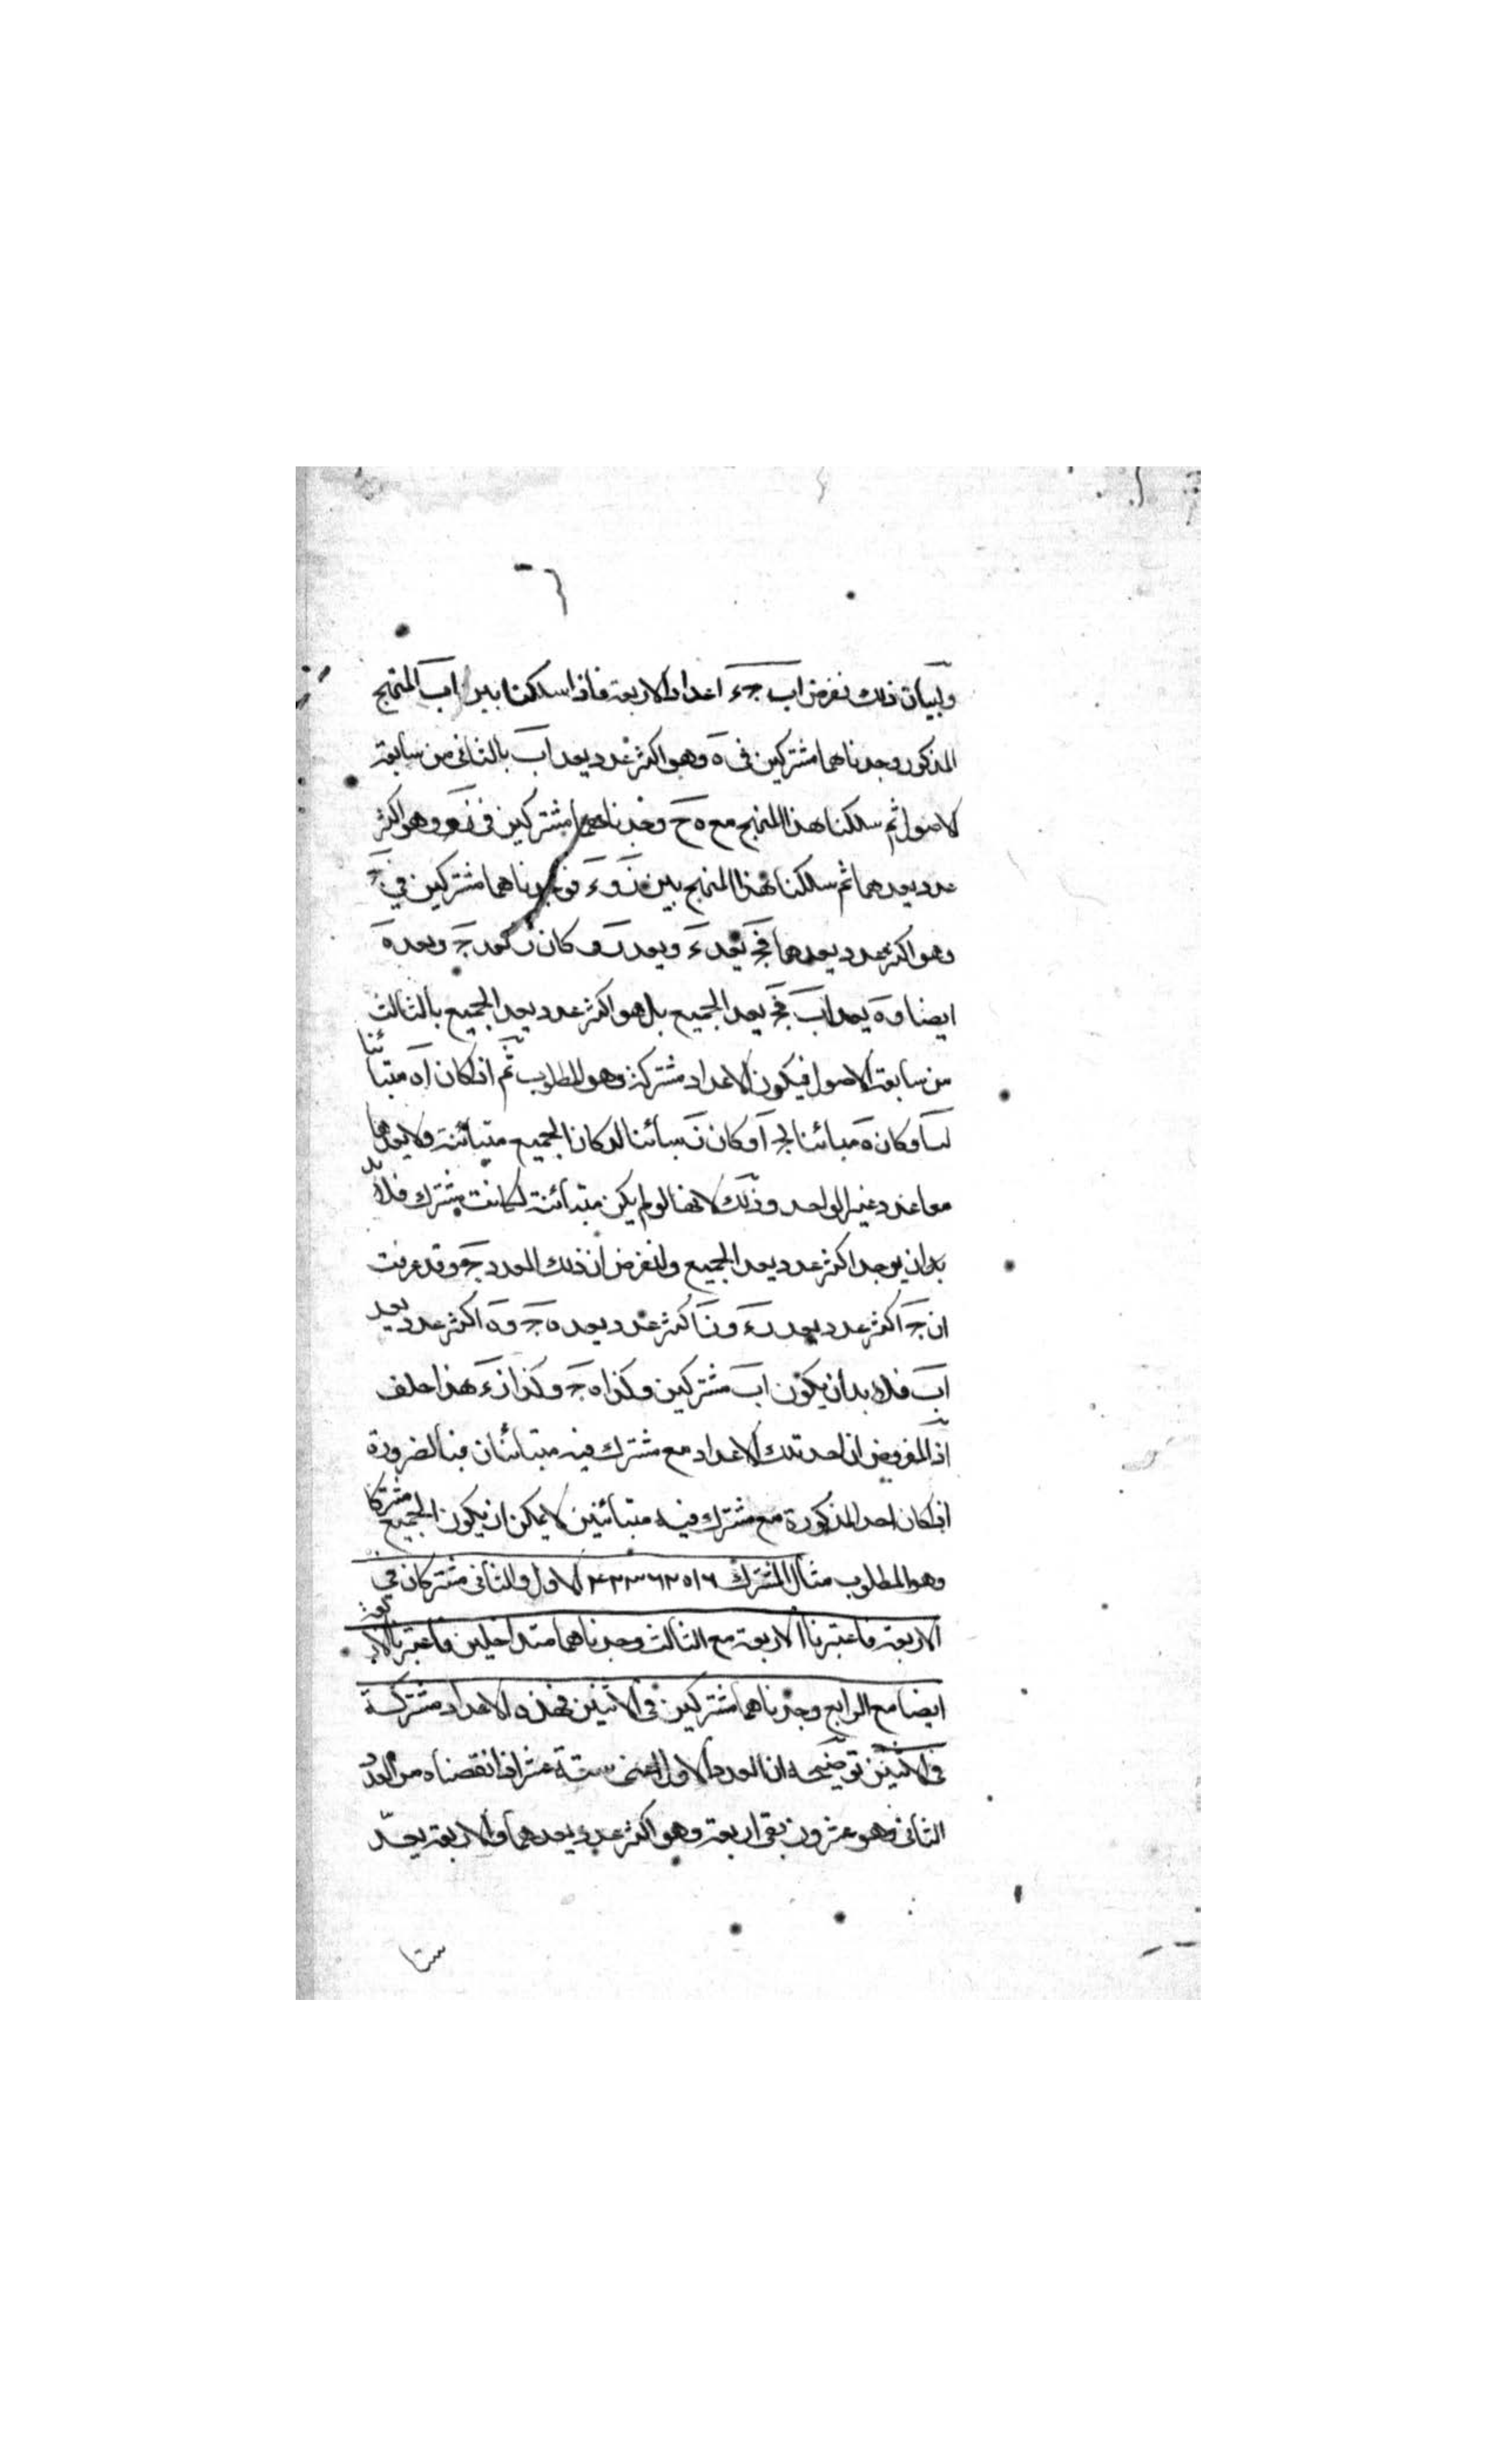 ولبيان ذلك نفرض اب ج ء اعداد الاربعة فاذا سلكنا بين اب المنهج
المذكور وجدناهما مشتركين فى ه وهو اكثر عدد يعد اب بالثانى من سابعة
لاصول ثم سلكنا هذا المنهج مع ه ح وجدناهما مشتركين فى ز وهو اكثر
عدد يعدهما ثم سلكنا هذا المنهج بين ز و ء فوجدناهما مشتركين فى
وهو اكثر عدد يعدهما فج يعد ء ويعد ز وكان ز يعد ج ويعد ه
ايضا و ه يعد اب فج يعد الجميع بل هو اكثر عدد يعد الجميع بالثالث
من سابعة الاصول فيكون الاعداد مشتركة وهو المطلوب ثم اذا كان ا ه متبائنا
لب او كان ه مبائنا لج او كان ز مبائنا لد كان الجميع متبائنة ولا يعدها
معا عدد غير الواحد وذلك لانها لو لم يكن متبائنة لكانت مشترك فلا بد
بد ان يوجد اكثر عدد يعد الجميع ولنفرض ان ذلك العدد ج وقد عرفت
ان ج اكثر عدد يعد ز ء و ز اكثر عدد يعد ه ج و ه اكثر عدد يعد
اب فلا بد ان يكون اب مشتركين وكذا ه ج وكذا ز ء هذا خلف
اذ المفروض ان احد تلك الاعداد مع مشترك فيه متبائنان فبالضرورة
اذا كان احد المذكورة مع مشترك فيه متبائنين لا يمكن ان يكون الجميع مشتركا
وهو المطلوب مثال المشترك الاول والثانى مشتركان فى
الاربعة فاعتبرنا الاربعة مع الثالث وجدناهما متداخلين فاعتبرنا الاربعة
ايضا مع الرابع وجدناهما مشتركين فى الاثنين فهذه الاعداد مشتركة
فى الاثنين توضيحه ان العدد الاول اعنى ستة عشر اذا نقصناه من العدد
الثانى وهو عشرون بقى اربعة وهو اكثر عدد يعدهما والاربعة يعدّ
ستا